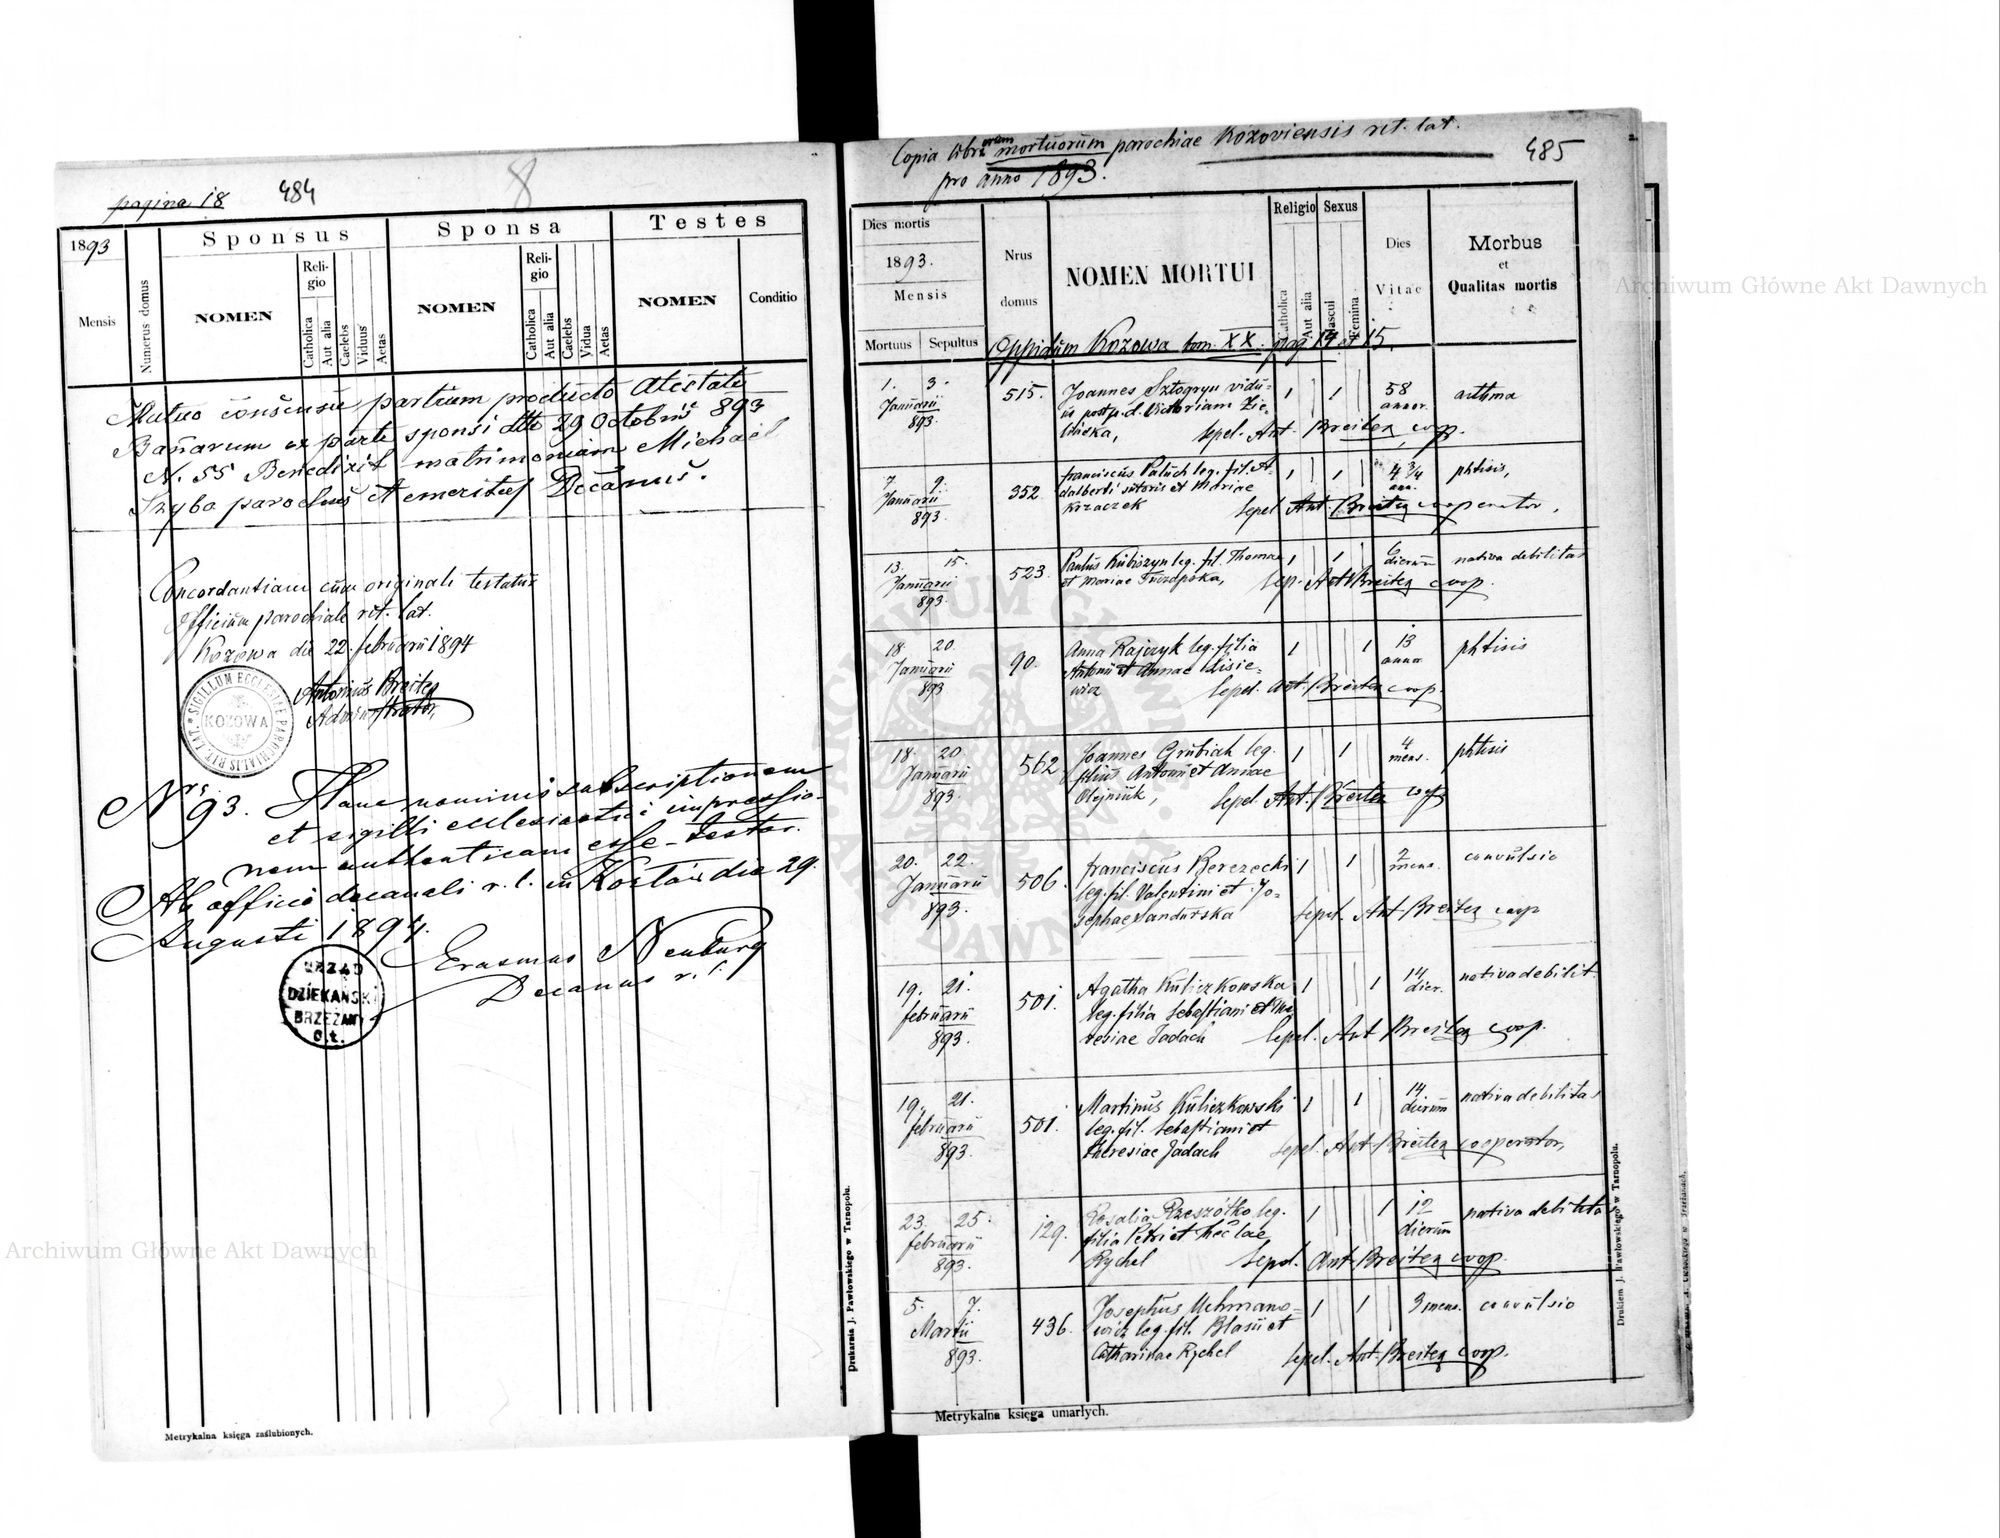 pagina 18 484 8
1893
Numerus domus
Sponsus
Sponsa
Testes
Mensis
NOMEN
Reli-
gio
Catholica
Aut alia
Caelebs
Viduus
Aetas
NOMEN
Reli-
gio
Catholica
Aut alia
Caelebs
Vidua
Aetas
NOMEN
Conditio
Mutuo consensu partium producto Atestatu
Bannarum ex parte sponsi dtto 29 Octobris 893
N. 55 Benedixit matrimonium Michael
Szyba parochus Aemeritus Decanus.
Concordantiam cum originali testatur
Officium parochiale rit. lat.
Kozowa die 22. februarii 1894
Antonius Breiter
Administrator,
SIGILLUM ECCLESIAE PAROCHIALIS RIT. LAT.
KOZOWA
Nrs 93. Hanc nominis subscriptionem
et sigilli ecclesiastici impressio-
nem authenticam esse testor.
Ab officio decanali r. l. in die 29.
Augusti 1894.
Erasmus Neuburg
Decanus r. l.
URZAD
DZIEKAŃSKI
BRZEŻANY
O.ł.
Metrykalna księga zaślubionych.
Drukarnia J. Pawłowskiego w Tarnopolu.
Copia librorum mortuorum parochiae Kozoviensis rit. lat.
pro anno 1893.
485
Dies mortis
1893.
Mensis
Mortuus
Sepultus
Nrus
domus
NOMEN MORTUI
Religio
Catholica
Aut alia
Sexus
Mascul
Femina
Dies
Vitae
Morbus
et
Qualitas mortis
Oppidum Kozowa tom. XX. pag 14 et 15.
1. 3. Januarii 893. 515. Joannes Sztogryn vidu- 1 1 58 annor. asthma
us post p. d. Victoriam Zie-
lińska, sepel. Ant. Breiter, coop.
7. 9. Januarii 893. 352. franciscus Paluch leg. fil. A- 1 1 4 3/4 ann. phtisis,
dalberti sutoris et Mariae
Krzaczek sepel Ant. Breiter cooperator,
13. 15. Januarii 893. 523. Paulus Kubiszyn leg. fil. Thomae 1 1 6 dierum nativa debilitas
et Mariae sep. Ant Breiter coop.
18. 20. Januarii 893 90. Anna Rajczyk leg. filia 1 1 13 annor phtisis
Antonii et Annae Lisie-
wicz sepel. Ant. Breiter coop.
18. 20. Januarii 893. 562. Joannes Grubiak leg. 1 1 4 mens. phtisis
filius Antonii et Annae
Olejniuk, sepel. Ant. Breiter coop
20. 22. Januarii 893. 506. franciscus Berezecki 1 1 2 mens. convulsio
leg. fil. Valentini et Jo-
sephae Sandurska sepel. Ant. Breiter coop
19. 21. februarii 893. 501. Agatha Kuliczkowska 1 1 14 dier. nativa debilit.
leg. filia Sebastiani et The-
resiae Jadach sepel. Ant Breiter coop.
19. 21. februarii 893. 501. Martinus Kuliczkowski 1 1 14 dierum nativa debilitas
leg. fil. Sebastiani et
theresiae Jadach sepel. Ant. Breiter cooperator,
23. 25. februarii 893. 129. Rosalia Rzeszótko leg. 1 1 12 dierum nativa debilitas
filia Petri et Theclae
Rychel sepel. Ant. Breiter coop.
5. 7. Martii 893. 436. Josephus Uchmano- 1 1 3 mens. convulsio
wicz leg. fil. Blasii et
Catharinae Rychel sepel. Ant. Breiter coop.
Metrykalna księga umarłych.
Drukiem J. Pawłowskiego w Tarnopolu.
Archiwum Główne Akt Dawnych
Archiwum Główne Akt Dawnych
ARCHIWUM GŁÓWNE AKT DAWNYCH